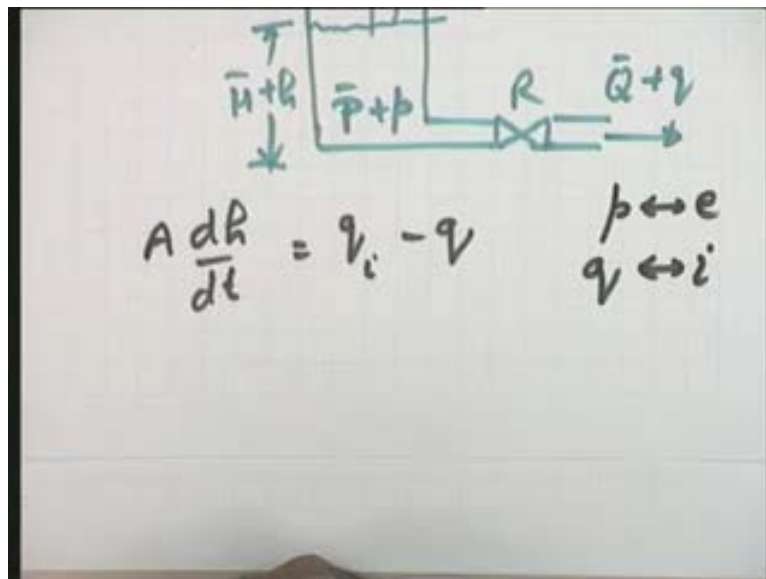 H̄ + h P̄ + p R Q̄ + q
A dh/dt = q_i - q
p ↔ e
q ↔ i